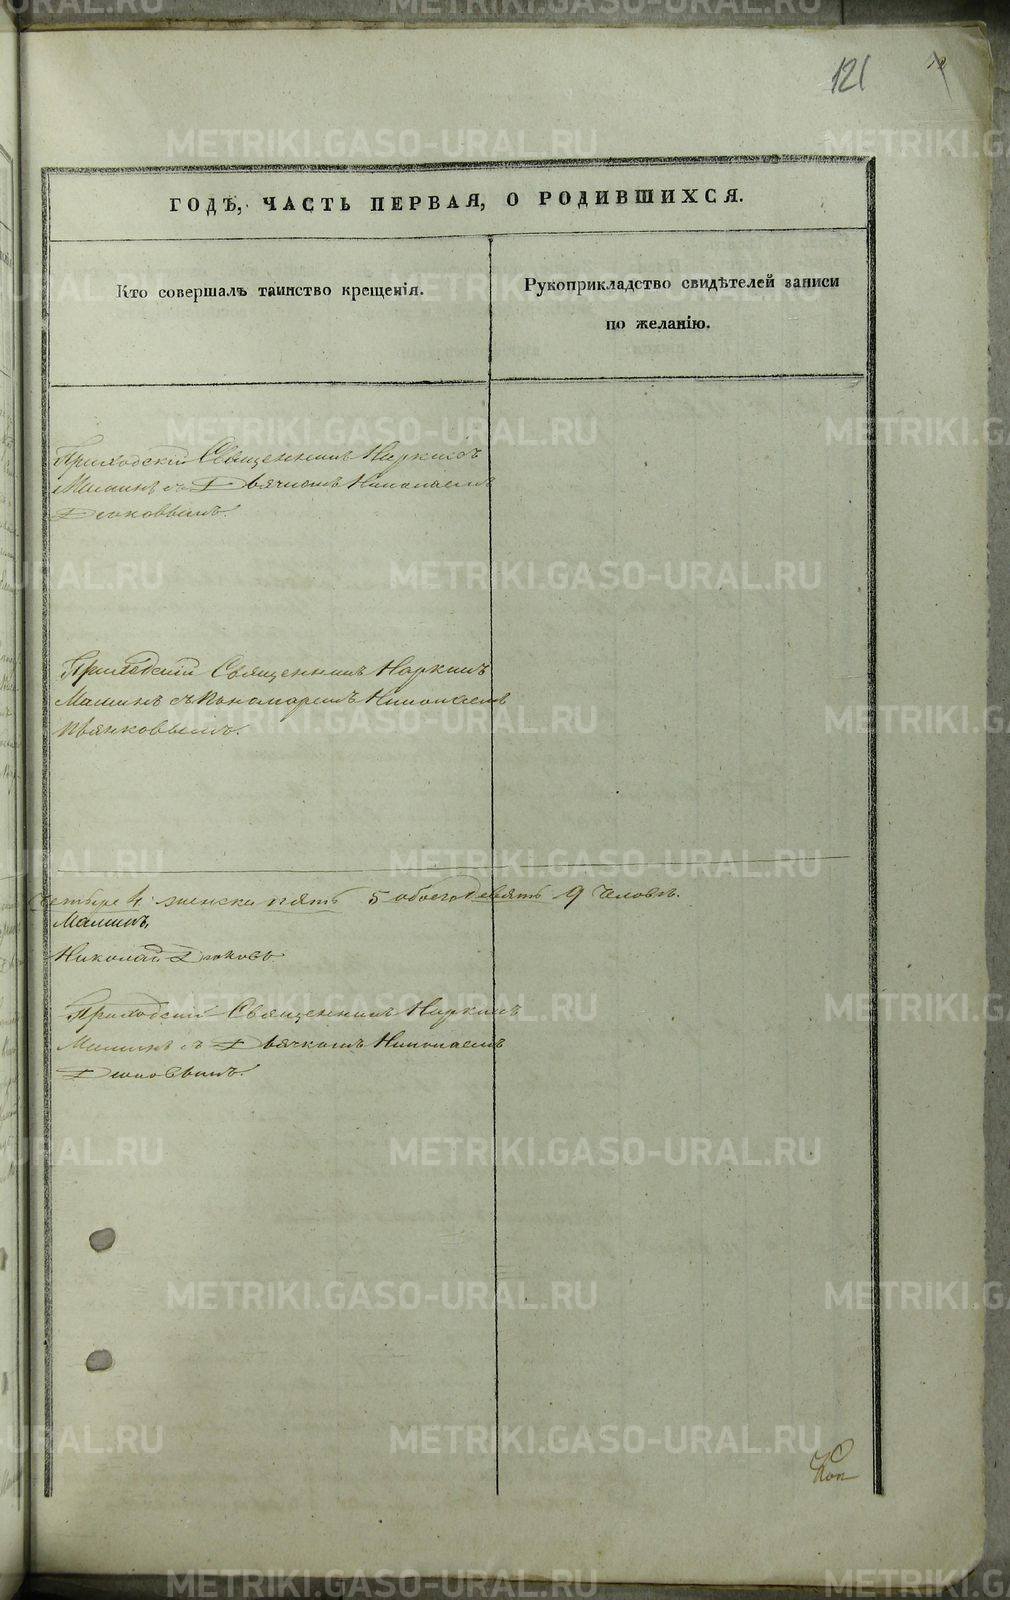 121
ГОДѢ, ЧАСТЬ ПЕРВАЯ, О РОДИВШИХСЯ.
Кто совершалъ таинство крещенія.
Рукоприкладство свидѣтелей записи
по желанію.
Приходскій Священникъ Наркисъ
Маминъ съ Дьячкомъ Николаемъ
Дюковымъ.
Приходскій Священникъ Наркисъ
Маминъ съ Пономаремъ Николаемъ
Пьянковымъ.
четыре 4 женска пять 5 обоего девять 9 Человѣ.
Маминъ,
Николай Дюковъ
Приходскій Священникъ Наркисъ
Маминъ съ Дьячкомъ Николаемъ
Дюковымъ.
METRIKI.GASO-URAL.RU